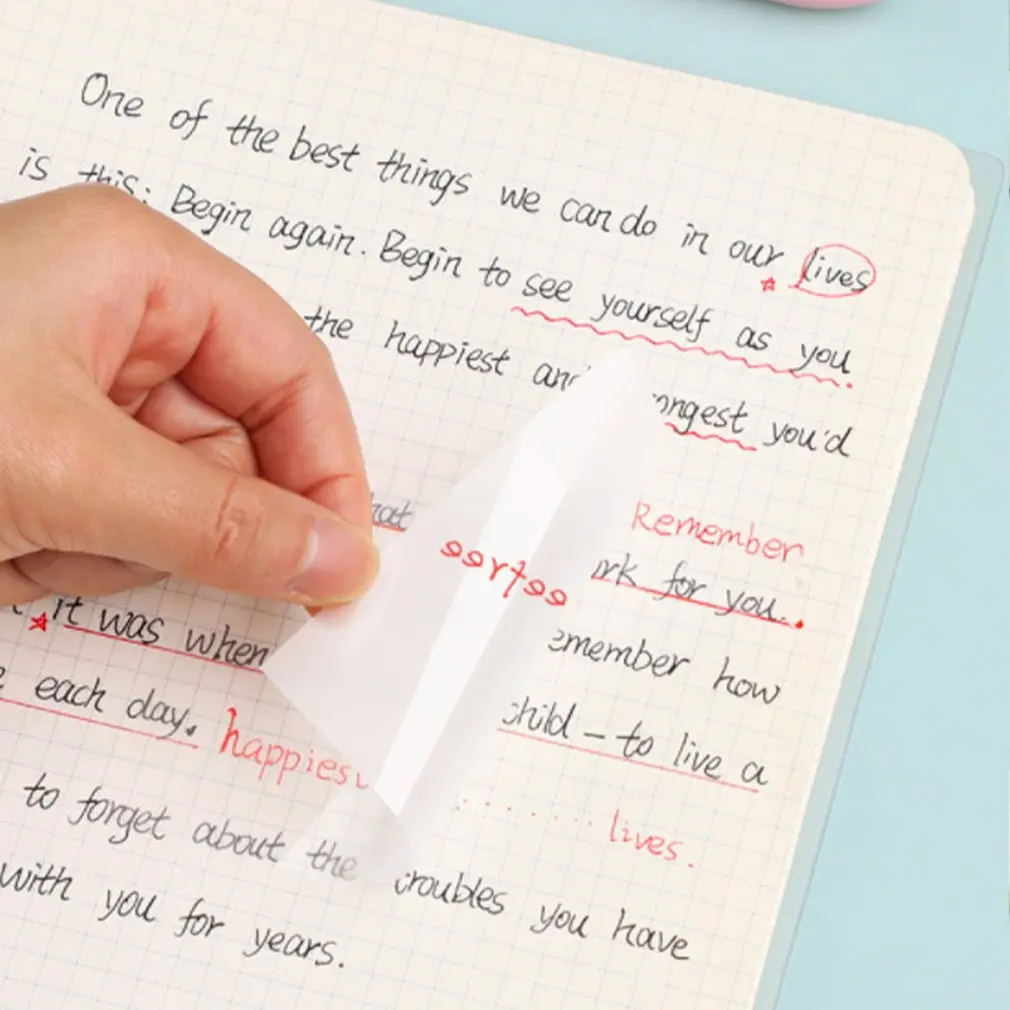 One of the best things we can do in our lives
is this: Begin again. Begin to see yourself as you
the happiest and ongest you'd
hat
Remember
rk for you..
it was when emember how
each day. happies child - to live a
lives.
to forget about the troubles you have
with you for years.